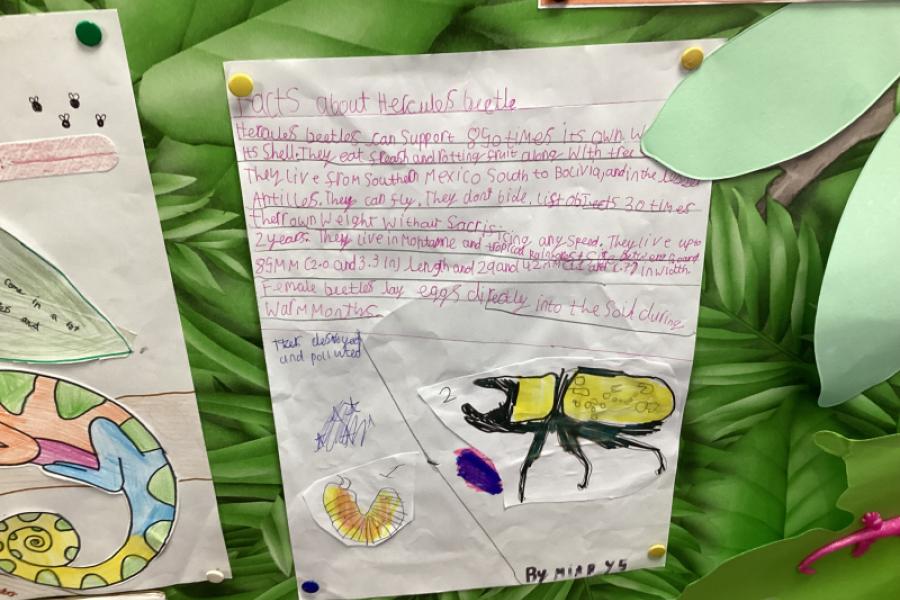 Facts about Hercules beetle
Hercules beetles can support 850 times its own w
Its Shell. They eat and rotting fruit along with tree
They live from Southern Mexico South to Bolivia, and in the Lesser
Antilles. They can fly. They don't bide, objects 30 times
own weight without
2 years. They live in and any speed. They live up to
tropical
85MM (2.0 and 3.3 in) Length and 29 and 42 in width
Female beetles lay eggs directly into the Soil during
Warm Months
destroyed
and polluted
2
1
By Y5
come in a
and